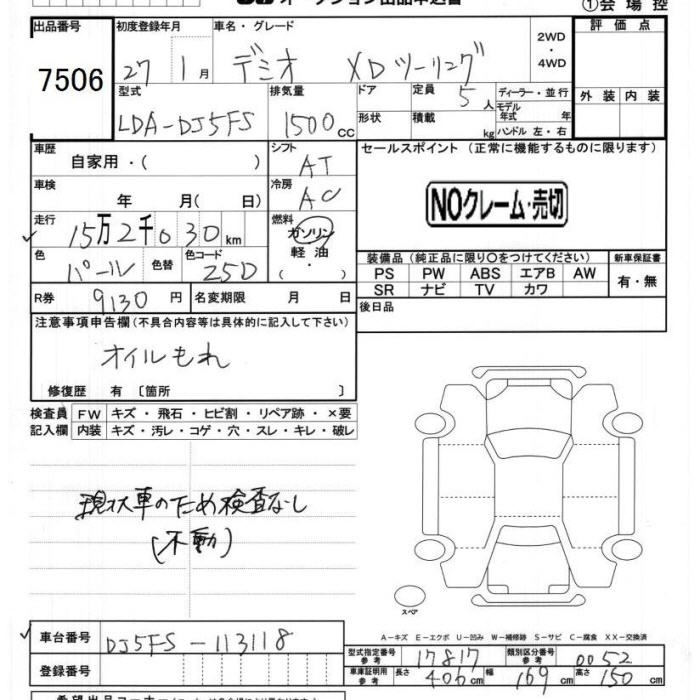 ①会場控
出品番号
7506
初度登録年月
27 1月
車名・グレード
デミオ XDツーリング
2WD
・
4WD
評価点
外装 内装
型式
LDA-DJ5FS
排気量
1500cc
ドア
形状
定員 5人
積載 kg
ディーラー・並行
モデル年式 年
ハンドル 左・右
車歴
自家用・( )
シフト
AT
車検
年 月( 日)
冷房
AC
走行
15万2千030km
燃料
ガソリン
軽油
・
色
パール
色替
色コード
25D
R券
9130円
名変期限 月 日
セールスポイント(正常に機能するものに限ります)
NOクレーム・売切
装備品(純正品に限り〇をつけてください)
新車保証書
PS PW ABS エアB AW
SR ナビ TV カワ
有・無
後日品
注意事項申告欄(不具合内容等は具体的に記入して下さい)
オイルもれ
修復歴 有〔箇所 〕
検査員記入欄
FW キズ・飛石・ヒビ割・リペア跡・×要
内装 キズ・汚レ・コゲ・穴・スレ・キレ・破レ
現状車のため検査なし
(不動)
スペア
A-キズ E-エクボ U-凹み W-補修跡 S-サビ C-腐食 XX-交換済
車台番号
DJ5FS-113118
登録番号
型式指定番号 参考
17817
類別区分番号 参考
0052
車庫証明用 参考
長さ 406cm 幅 169cm 高さ 150cm